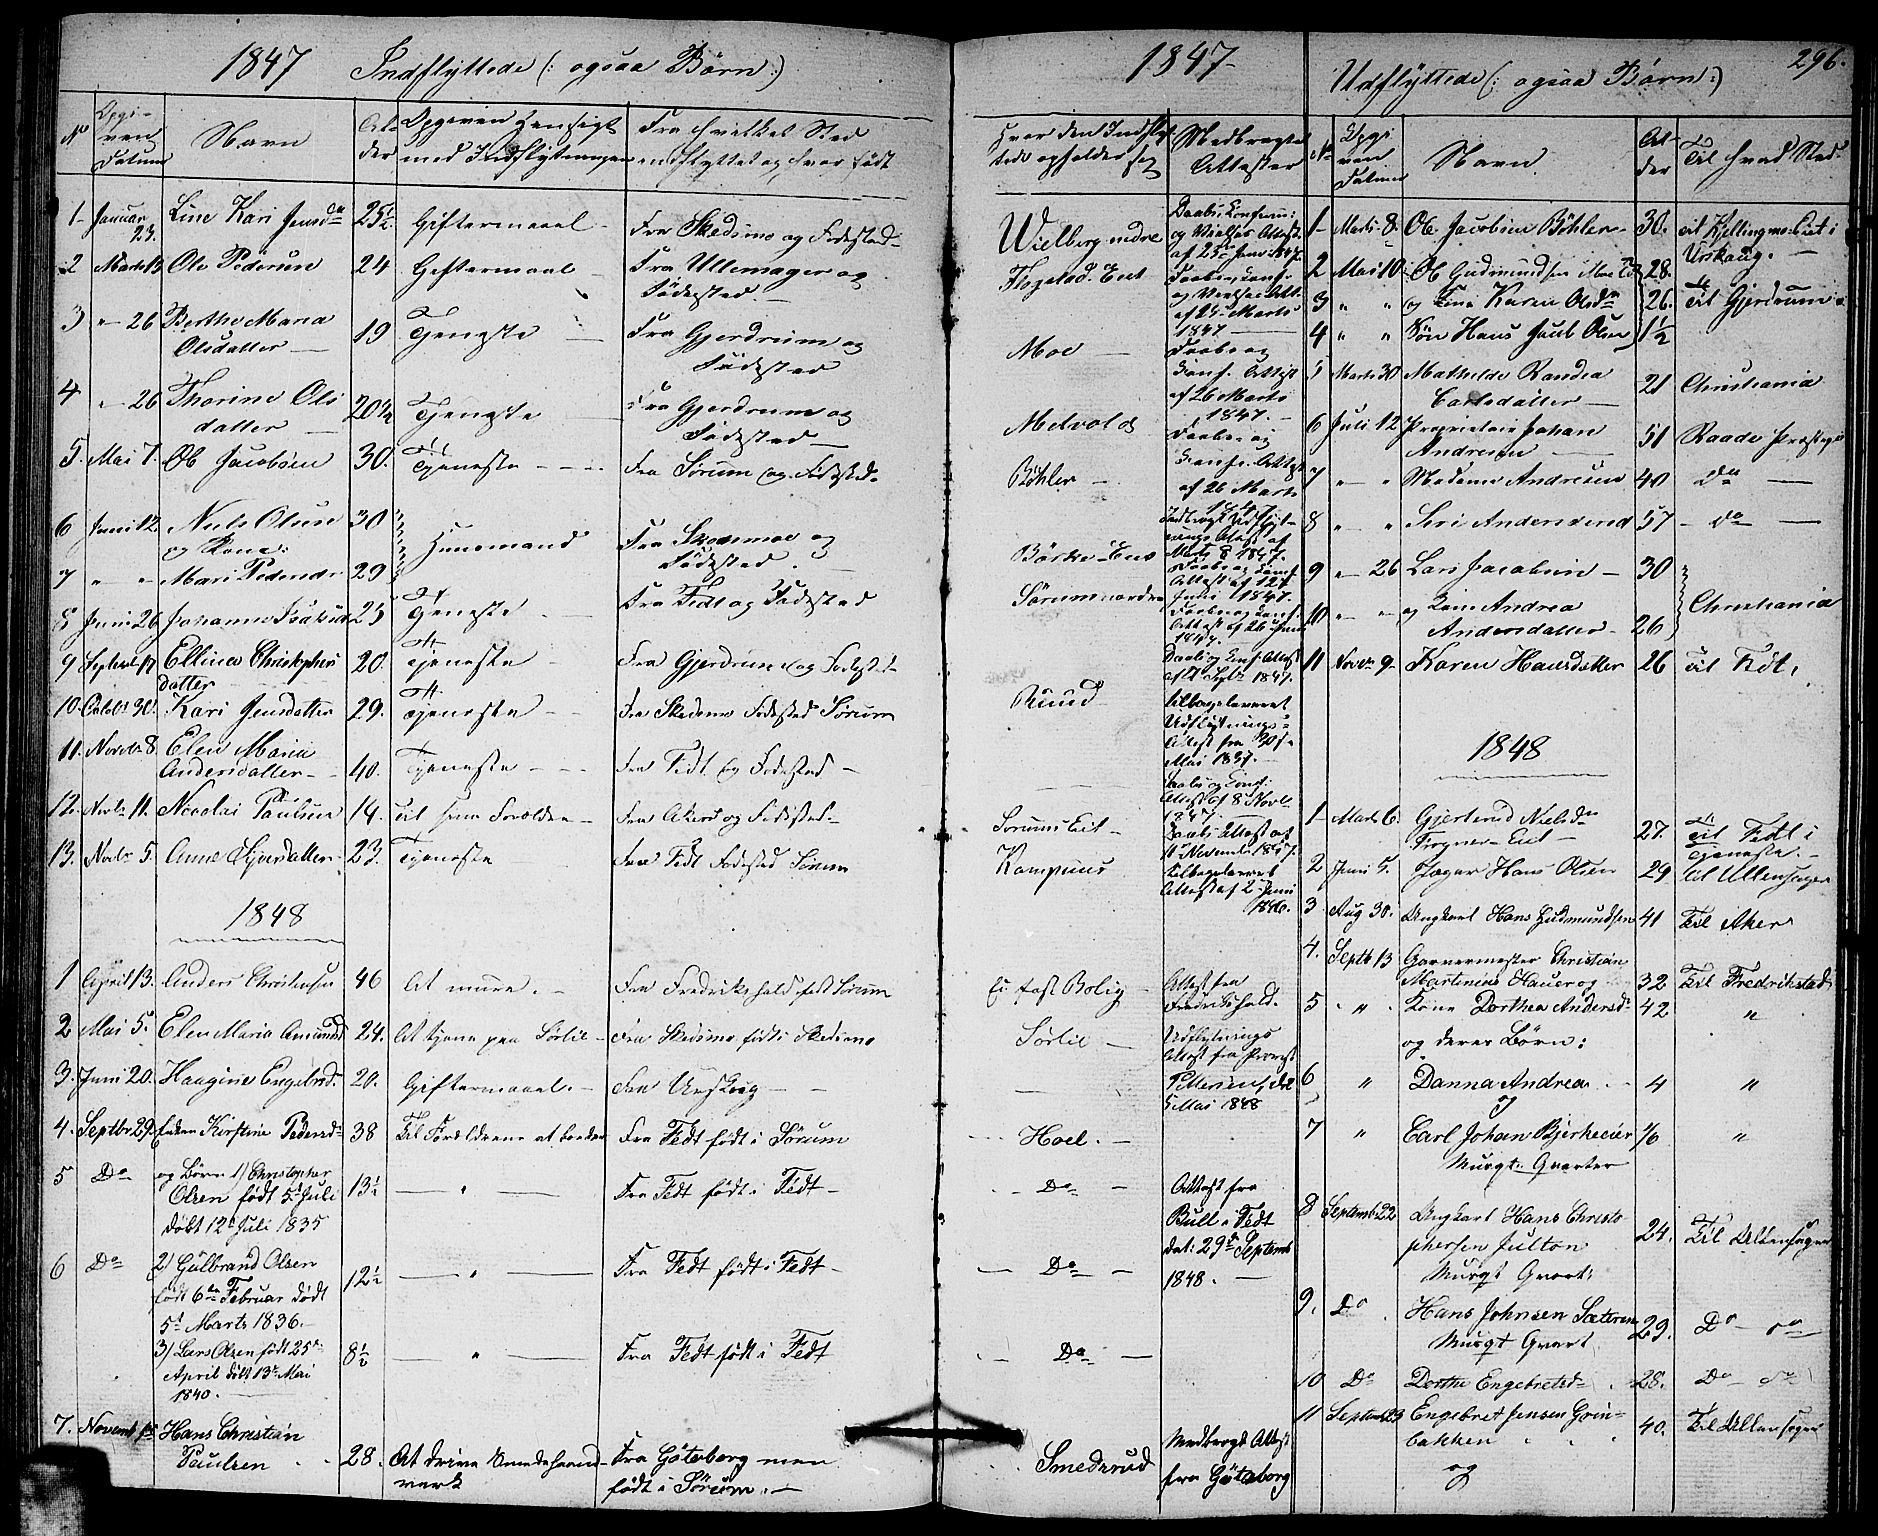 1847 Indflyttede (: ogsaa Børn :)
No Opgiven Datum Navn Alder Opgiven Hensigt med Indflytningen Fra hvilket Sted indflyttet og hvor født
1 Januar 23. Line Kari Jensdr 25½ Giftermaal Fra Skedsmo og Fødested
2 Marts 13 Ole Pedersen 24 Giftermaal Fra Ullensager og Fødested
3 " 26 Berthe Maria Olsdatter 19 Tjeneste Fra Gjerdrum og Fødested
4 " 26 Thorine Olsdatter 20½ Tjeneste Fra Gjerdrum og Fødested
5. Mai 7. Ole Jacobsen 30. Tjeneste Fra Sørum og Fødested
6 Juni 12 Niels Olsen 30 Huusmand Fra Skedsmoe og Fødested.
og Kone:
7 " " Mari Pedersdr 29
8 Juni 26 Johannes Isaksen 25 Tjeneste Fra Fedt og Fødested
9 Septbr 17 Ellina Christophersdatter 20. Tjeneste Fra Gjerdrum og Fødested
10. Octobr 30. Kari Jensdatter 29. Tjeneste Fra Skedsmo Fødested Sørum
11. Novbr 8. Elen Maria Andersdatter 40. Tjeneste Fra Fedt og Fødested
12. Novbr 11. Nicolai Paulsen 14. Til sine Forældre Fra Akers og Fødested
13. Novbr 5. Anne 23. Tjeneste Fra Fedt Fødested Sørum
1848
1 April 13. Anders Christensen 46 At mure. Fra Frederikshald født Sørum
2 Mai 5. Elen Maria Amundsd 24. At tjene paa Sørlie Fra Skedsmo født i Skedsmo
3. Juni 20. Haagine Engebrd. 20. Giftermaal. Fra Urskoug
4. Septbr 29. Enken Kirstine Pedersdr 38 Til Forældrene Fra Fedt født i Sørum
5 Do og Børn 1) Christopher Olsen født 5t Juli døbt 12te Juli 1835 13½ " Fra Fedt født i Fedt
6 Do 2) Gulbrand Olsen født 6te Februar døbt 5t Marts 1836. 12½ " Fra Fedt født i Fedt
3) Lars Olsen født 25de April døbt 13de Mai 1840 8½ " Fra Fedt født i Fedt
7. Novemb Hans Christian Paulsen 28. At drive Smedehaandværk Fra Göteborg men født i Sørum.
1847
Hvor den Indflyttede opholder sig Medbragte Attester
Wielberg nedre Daabs Konfirm: og Vielses Attest af 23de Januar 1847.
Flogstad Eiet Daabs Konf. og Vielses Att. af 25 Marts 1847
Moe Daabs og Konf. Attest af 26 Marts 1847.
Melvold Daabs og Konf. Attest af 26 Marts 1847
Böhler Udflytnings Attest af Marts 8 1847.
Börke-Eie Daabs og Konf. Attest af 12te Juni 1847.
Sørum nordre Daabs og Konf. Attest af 26 Juni 1847.
Daabs og Konf. Attest af Septbr 1847.
Ruud tilbageleveret Udflytnings Attest fra Mai 1837.
Daabs og Konf. Attest af 8 Novbr 1847.
Sørums Eiet Daabs Attest af 11te November 1847.
Rampuus tilbageleveret Attest af 2 Juni 1846.
Ei fast Bolig Attest fra Fredrikshald.
Sørlie Udflytnings Attest fra Provst Pettersen, dat 5 Mai 1848
Hoel.
Do Attest fra Bull i Fedt dat: 29de Septemb 1848.
Do
Do
Smedsrud Medbragt Attest fra Göteborg
Udflyttede (: ogsaa Børn :) 296.
No Opgiven Datum Navn Alder Til hvad Sted
1 Marts 8. Ole Jacobsen Böhler 30. til Kjellingmo Eiet i Urskoug.
2 Mai 10 Ole Gudmundsen Moe 28.
3 " " og Line Karen Olsdr 26. Til Gjerdrum
4 " " Søn Hans Jacob Olsen 1½
5 Marts 30 Mathilde Randia Carlsdatter 21 Christiania
6 Juli 12 Proprietair Johan Andresen 51 Raade Præstegj
7 " " Madame Andresen 40 Do
8 " " Siri Andersdend 57 Do
9 " 26 Lars Jacobsen 30
10 " " og Line Andrea Andersdatter 26 Christiania
11 Novbr 9. Karen Hansdatter 26 Til Fedt.
1848
1 Marts 6. Gjertrud Nielsdr Frogner-Eiet 27. Til Fedt i Tjeneste.
2 Juni 5. Jæger Hans Olsen 29 til Ullensager
3 Aug 30. Ungkarl Hans Gudmundsen 41 Til Aker
4. Septb 13 Garvermester Christian Martinius Hauer og 32 Til Fredrikstad
5 " Kone Dorthea Andersdr 42 "
og deres Børn:
6 " Danna Andrea 4 "
7 " Carl Johan Bjerkeeier 1/6 "
Musqt. Qvarter
8 Septemb 22 Ungkarl Hans Christophersen Julton 24. Til Ullensager
Musqt Qvart:
9. Do Hans Johnsen Sæteren 29. Do Do
Musqt Qvart
10 Do Dorthe Engebretsd 28. Do Do
11 Septemb 23 Engebret Jensen Grinbakken 40. Til Ullensager
og